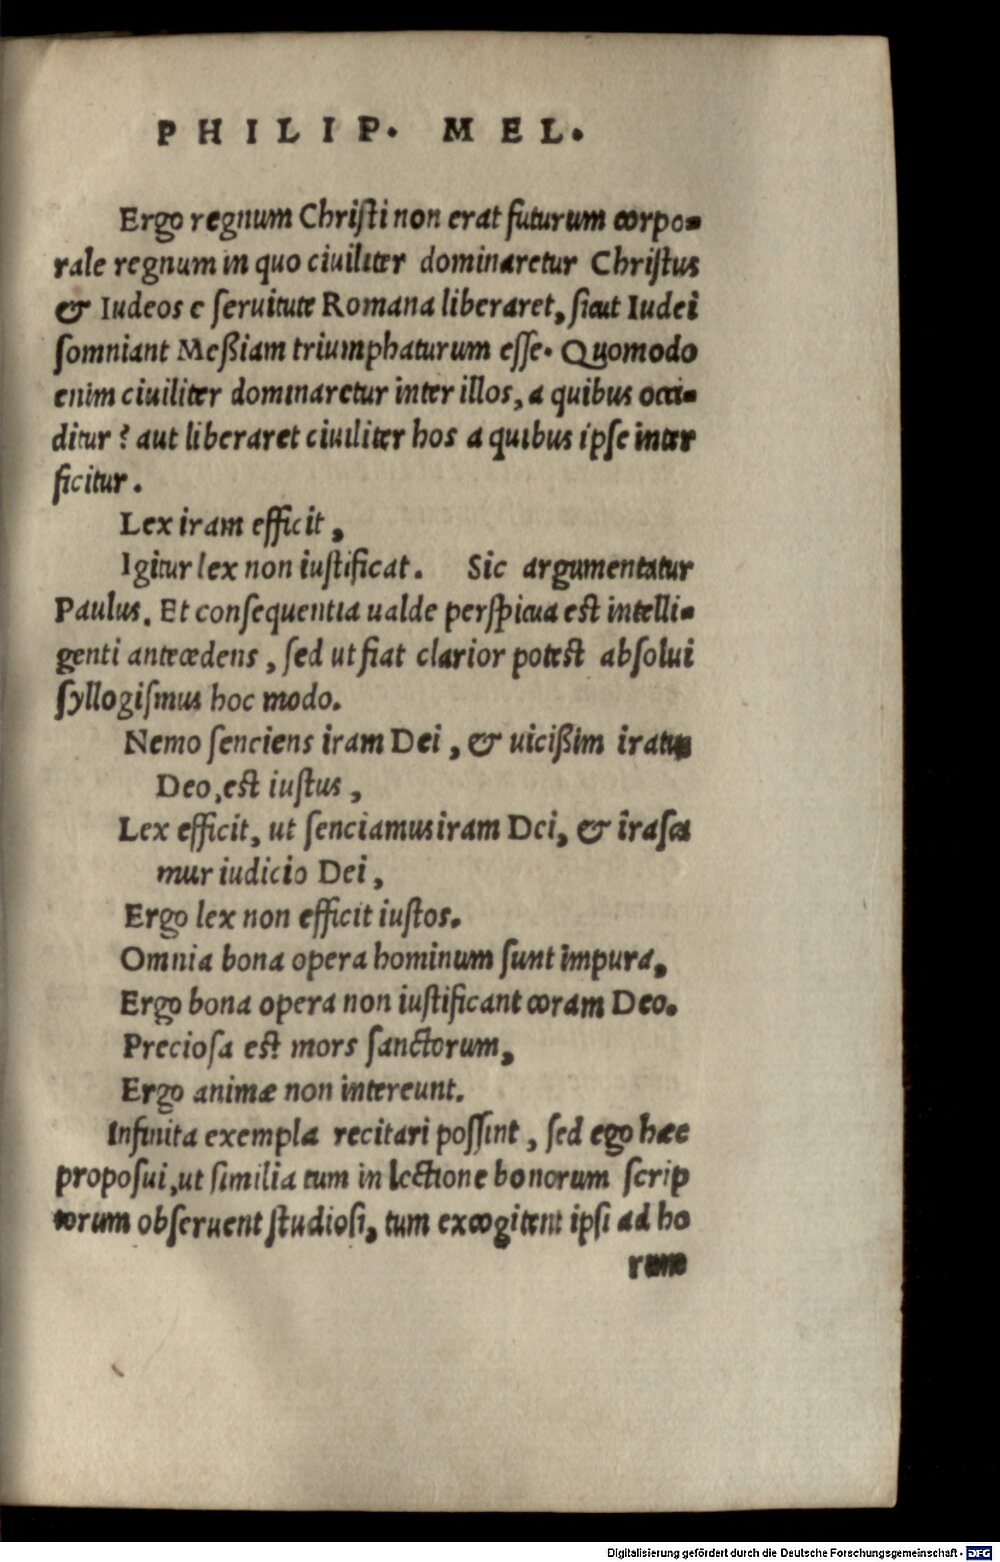 PHILIP. MEL.
Ergo regnum Chriſti non erat futurum corpo-
rale regnum in quo ciuiliter dominaretur Chriſtus
& Iudeos e ſeruitute Romana liberaret, ſicut Iudei
ſomniant Meßiam triumphaturum eſſe. Quomodo
enim ciuiliter dominaretur inter illos, a quibus occi-
ditur? aut liberaret ciuiliter hos a quibus ipſe inter
ficitur.
Lex iram efficit,
Igitur lex non iuſtificat. Sic argumentatur
Paulus. Et conſequentia ualde perſpicua eſt intelli-
genti antecedens, ſed ut fiat clarior poteſt abſolui
ſyllogiſmus hoc modo.
Nemo ſenciens iram Dei, & uicißim iratus
Deo, eſt iuſtus,
Lex efficit, ut ſenciamus iram Dei, & iraſca
mur iudicio Dei,
Ergo lex non efficit iuſtos.
Omnia bona opera hominum ſunt impura,
Ergo bona opera non iuſtificant coram Deo.
Precioſa eſt mors ſanctorum,
Ergo animæ non intereunt.
Infinita exempla recitari poſſint, ſed ego hæc
propoſui, ut ſimilia tum in lectione bonorum ſcrip
torum obſeruent ſtudioſi, tum excogitent ipſi ad ho
rum
Digitalisierung gefördert durch die Deutsche Forschungsgemeinschaft - DFG